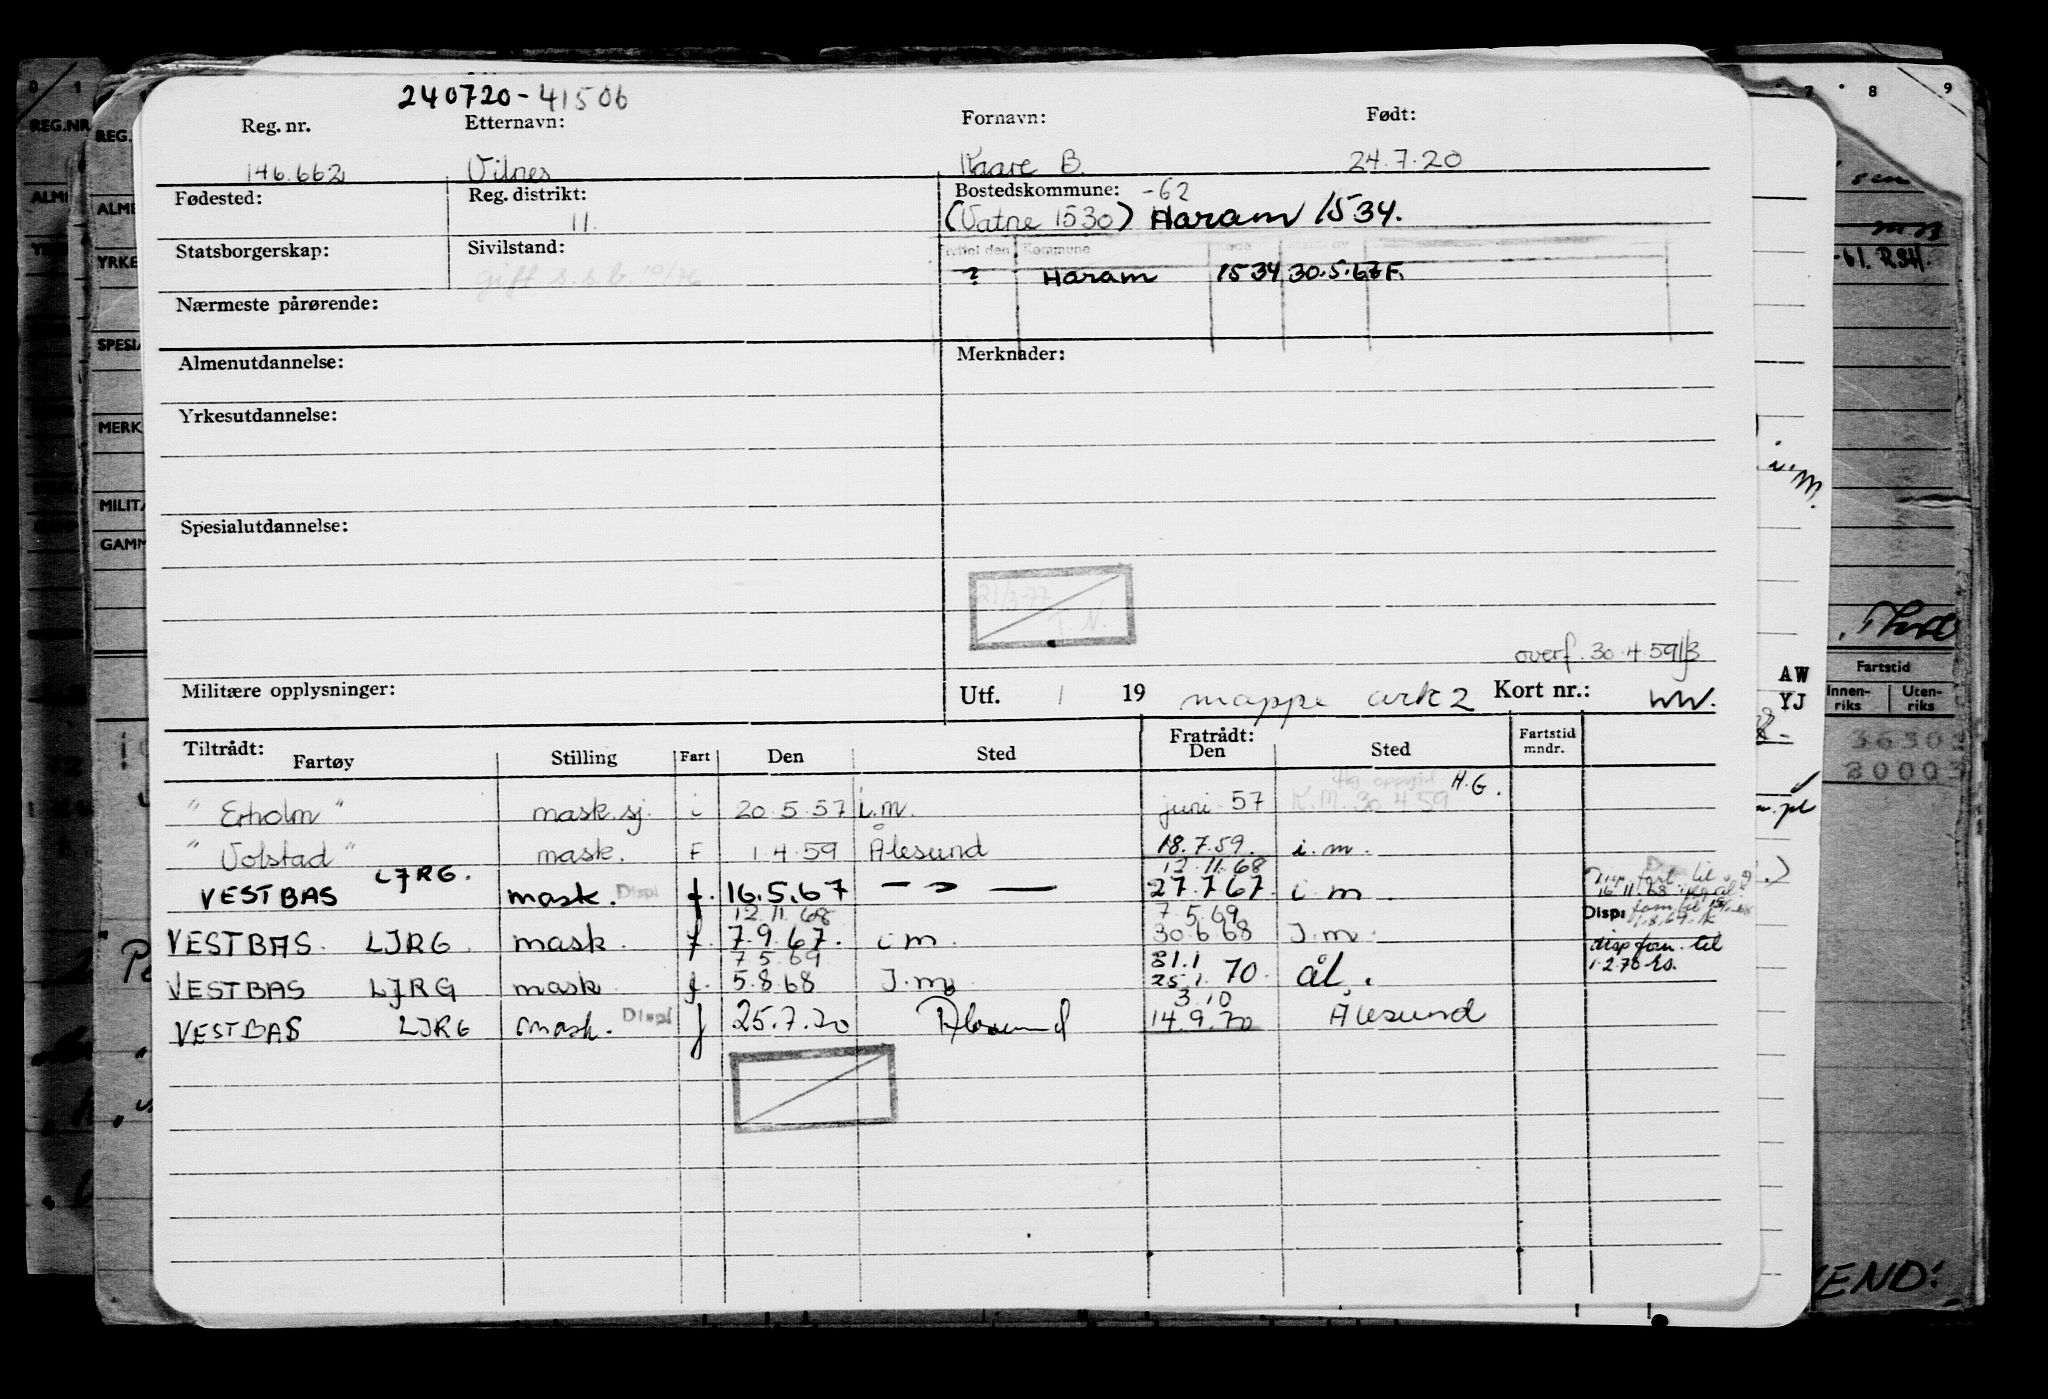 240720-41506
Reg. nr. Etternavn: Fornavn: Født:
146.662 Vilnes Kaare B. 24.7.20
Fødested: Reg. distrikt: Bostedskommune: -62
11. (Vatne 1530) Haram 1534.
Statsborgerskap: Sivilstand: Kommune
gift ? Haram 1534 30.5.67 F.
Nærmeste pårørende:
Almenutdannelse: Merknader:
Yrkesutdannelse:
Spesialutdannelse:
21/3-77
T.N.
overf. 30.4.59
Militære opplysninger: Utf. 1 19 mappe ark 2 Kort nr.: WW.
Tiltrådt: Fratrådt: Fartstid
Fartøy Stilling Fart Den Sted Den Sted mndr.
H.G.
" Erholm " mask.sj. i 20.5.57 i.m. juni 57 K.M. 30.4.59
" Volstad " mask. F 1.4.59 Ålesund 18.7.59. i.m.
12.11.68
VESTBAS LJRG. mask. Displ f. 16.5.67 — " — 27.7.67. i m.
12.11.68 7.5.69
VESTBAS. LJRG. mask. f. 7.9.67. i m. 30.6.68 I.m.
7.5.69 31.1
VESTBAS LJRG mask f. 5.8.68 I.m. 25.1.70. ål.
3.10
VESTBAS LJRG mask. Displ f 25.7.70 Ålesund 14.9.70 Ålesund
Disp:
disp forn. til
1.2.70
REG.NR
REG.
ALM
ALME
YRKE
SPESIA
MERK
MILITÆ
GAMM
7 8 9
sen
-61. RSH.
i.M.
AW
YJ
Fartstid
Innen-riks Uten-riks
3630
20003
END: